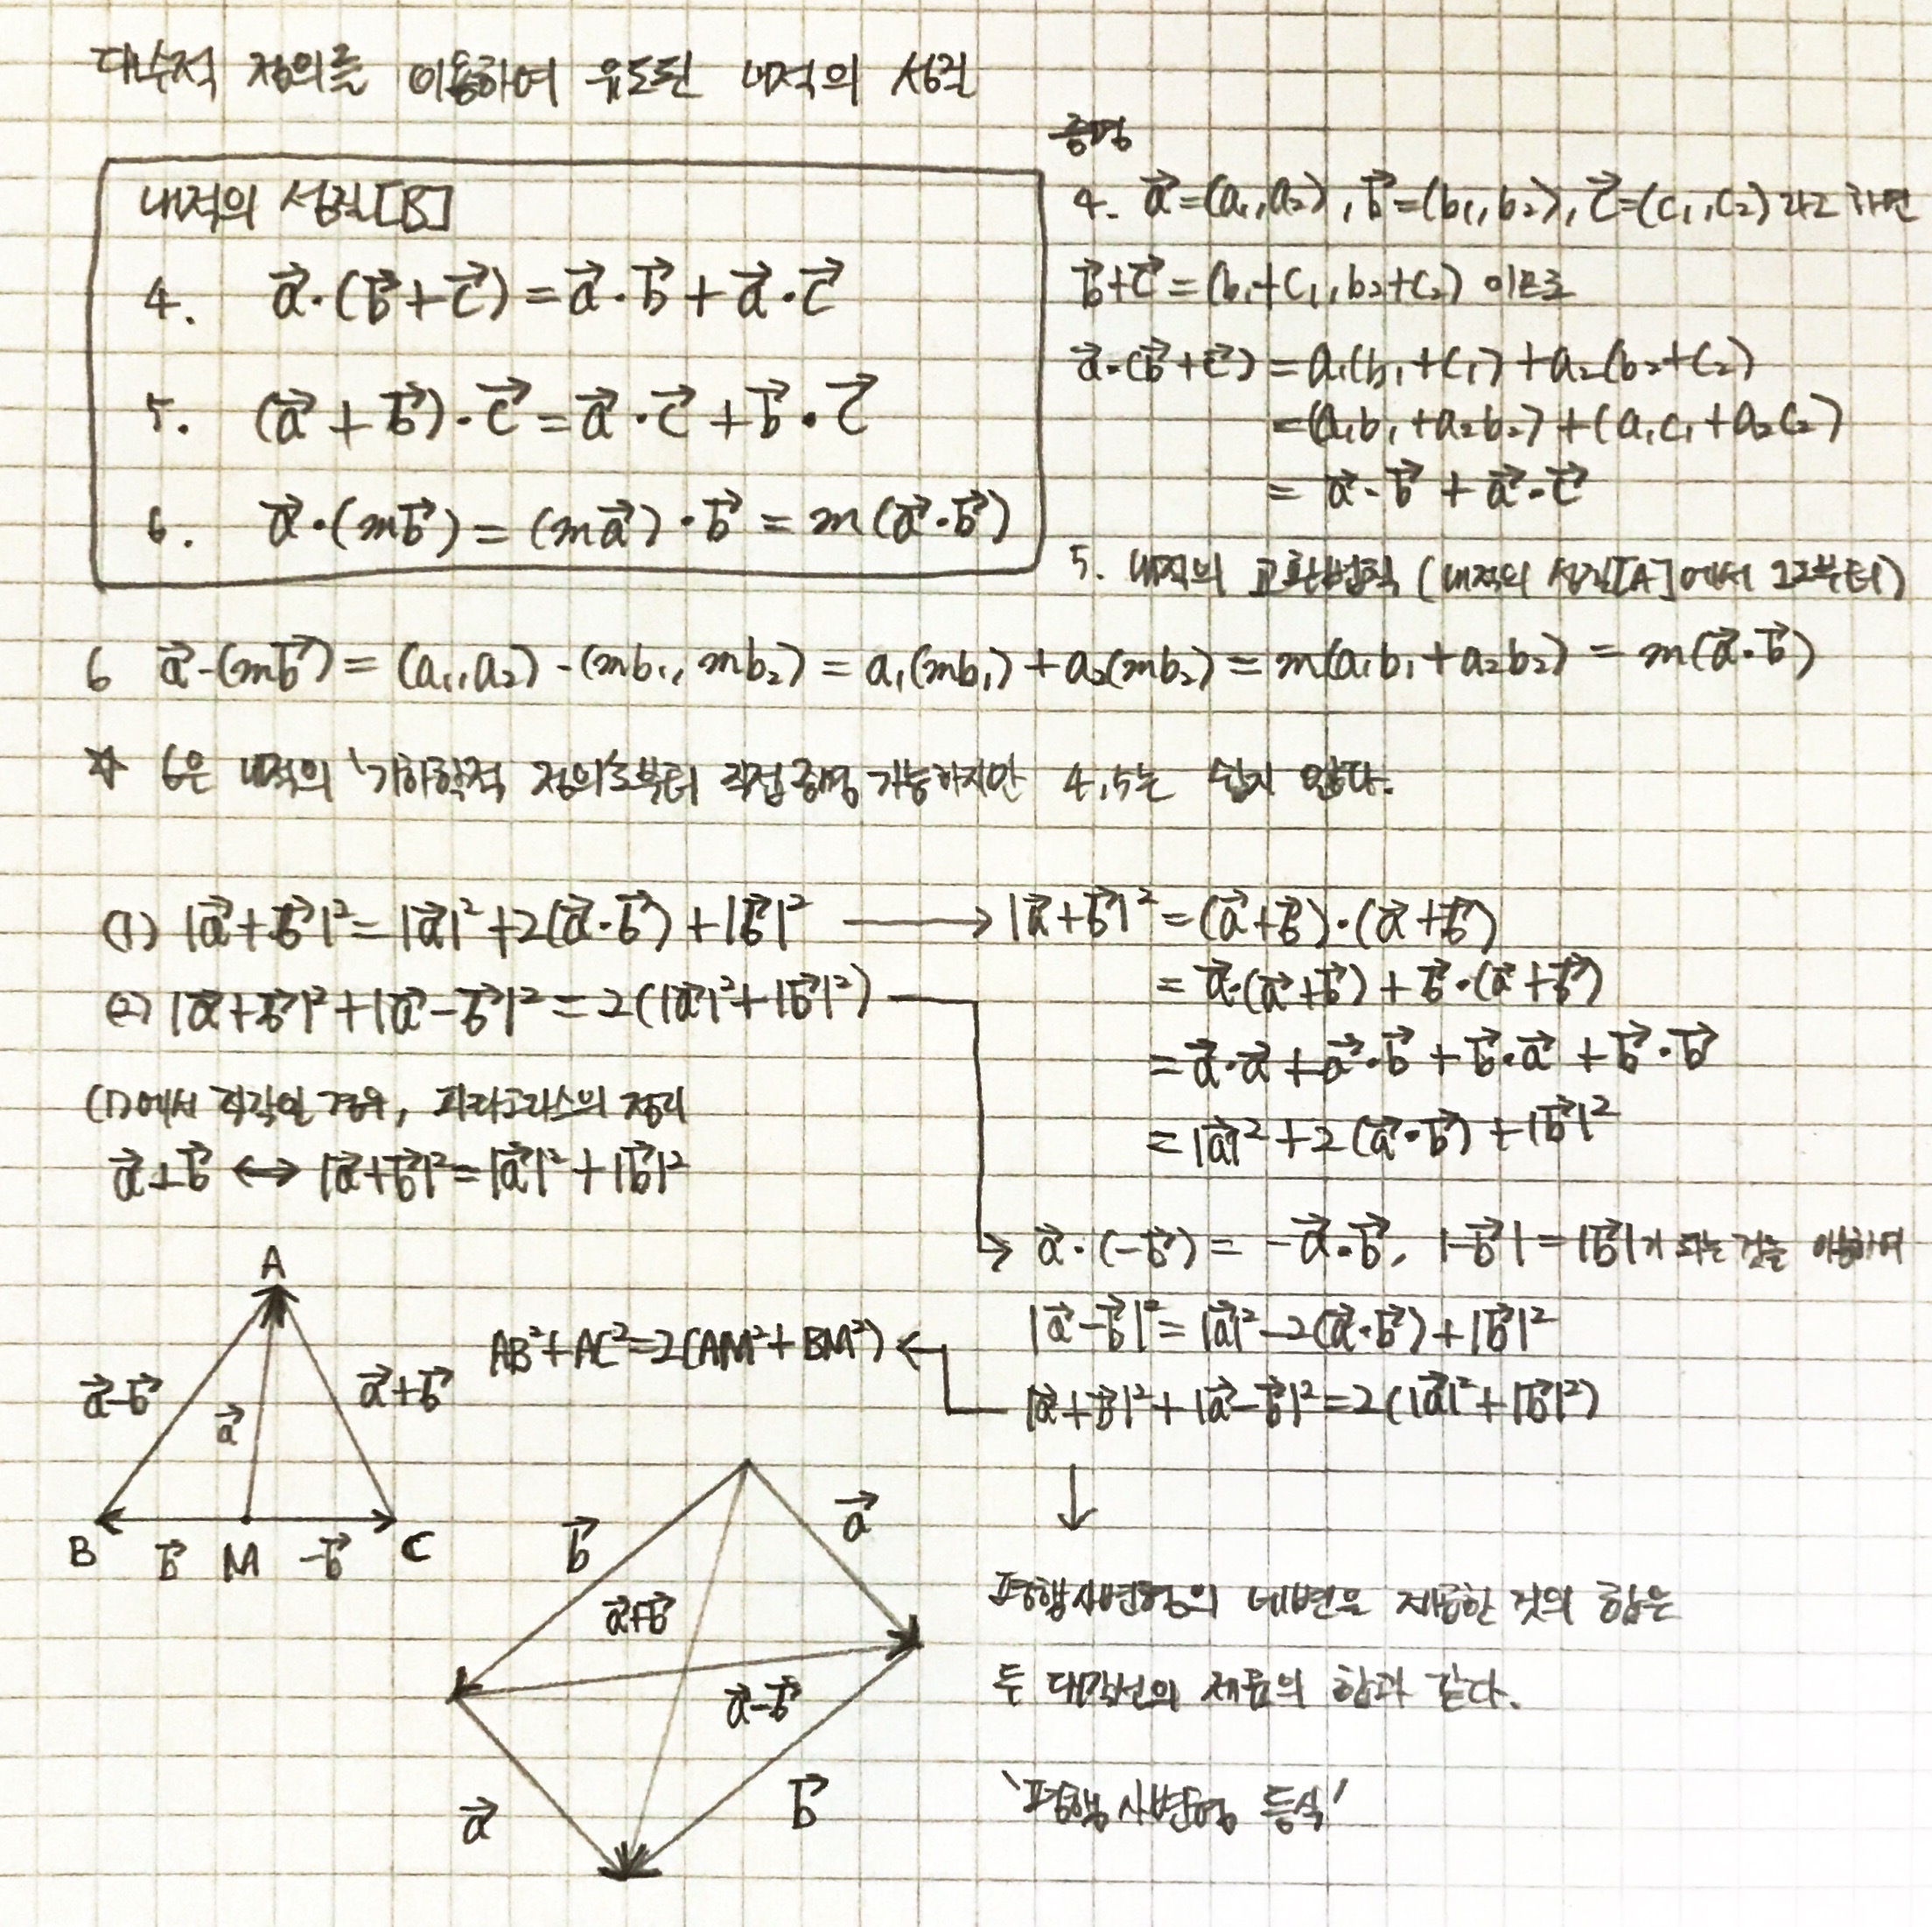 대수적 정의를 이용하여 유도된 내적의 성질
내적의 성질[B]
4. a⃗·(b⃗+c⃗)=a⃗·b⃗+a⃗·c⃗
5. (a⃗+b⃗)·c⃗=a⃗·c⃗+b⃗·c⃗
6. a⃗·(mb⃗)=(ma⃗)·b⃗=m(a⃗·b⃗)
증명
4. a⃗=(a₁,a₂), b⃗=(b₁,b₂), c⃗=(c₁,c₂)라고 하면
b⃗+c⃗=(b₁+c₁,b₂+c₂) 이므로
a⃗·(b⃗+c⃗)=a₁(b₁+c₁)+a₂(b₂+c₂)
=(a₁b₁+a₂b₂)+(a₁c₁+a₂c₂)
=a⃗·b⃗+a⃗·c⃗
5. 내적의 교환법칙 (내적의 성질[A]에서 2로부터)
6 a⃗·(mb⃗)=(a₁,a₂)·(mb₁,mb₂)=a₁(mb₁)+a₂(mb₂)=m(a₁b₁+a₂b₂)=m(a⃗·b⃗)
☆ 6은 내적의 '기하학적 정의'로부터 직접 증명 가능하지만 4,5는 쉽지 않다.
(1) |a⃗+b⃗|²=|a⃗|²+2(a⃗·b⃗)+|b⃗|² → |a⃗+b⃗|²=(a⃗+b⃗)·(a⃗+b⃗)
=a⃗·(a⃗+b⃗)+b⃗·(a⃗+b⃗)
=a⃗·a⃗+a⃗·b⃗+b⃗·a⃗+b⃗·b⃗
=|a⃗|²+2(a⃗·b⃗)+|b⃗|²
(2) |a⃗+b⃗|²+|a⃗-b⃗|²=2(|a⃗|²+|b⃗|²)
(1)에서 직각일 경우, 피타고라스의 정리
a⃗⊥b⃗ ↔ |a⃗+b⃗|²=|a⃗|²+|b⃗|²
→ a⃗·(-b⃗)=-a⃗·b⃗, |-b⃗|=|b⃗|가 되는 것을 이용하여
|a⃗-b⃗|²=|a⃗|²-2(a⃗·b⃗)+|b⃗|²
|a⃗+b⃗|²+|a⃗-b⃗|²=2(|a⃗|²+|b⃗|²)
AB²+AC²=2(AM²+BM²) ←
A
a⃗-b⃗
a⃗
a⃗+b⃗
B b⃗ M -b⃗ C
b⃗
a⃗
a⃗+b⃗
a⃗-b⃗
a⃗
b⃗
↓
평행사변형의 네변을 제곱한 것의 합은
두 대각선의 제곱의 합과 같다.
'평행사변형 등식'